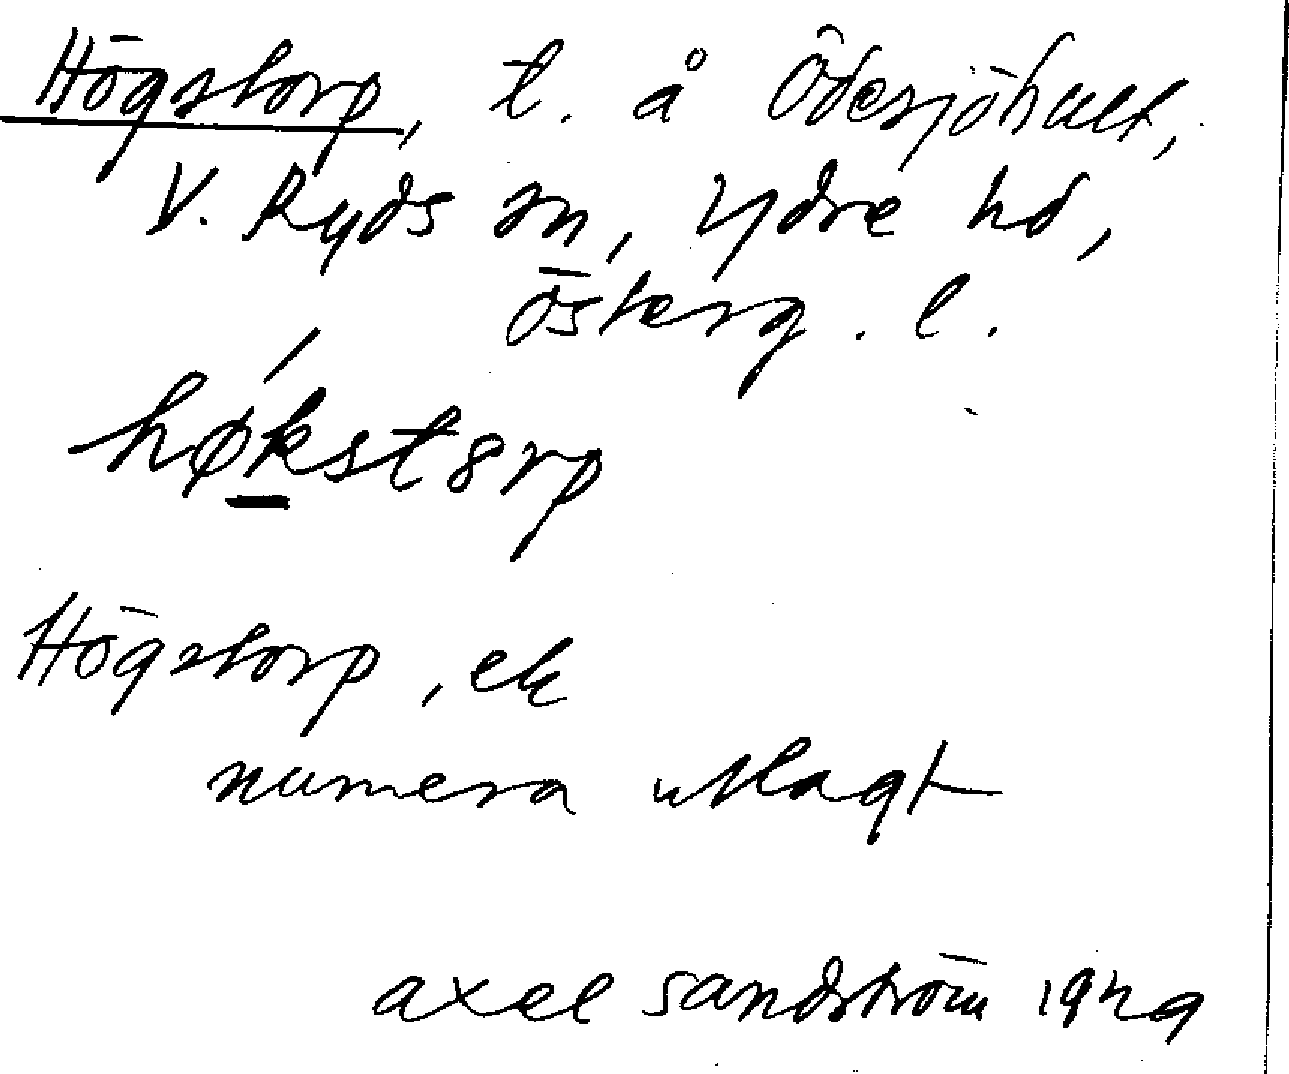 Högstorp, t. å Ödesjöhult,
V. Ryds sn, Ydre hd,
Österg. l.
høkstorp
Högstorp, ek
numera utlagt
axel sandström 1929